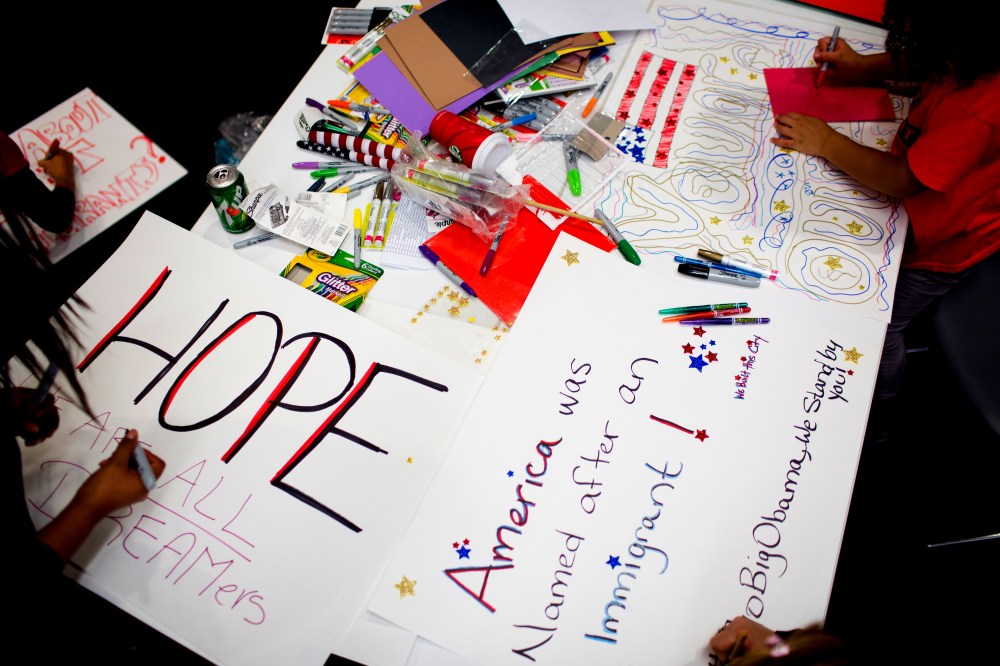 HOPE
ARE ALL
DREAMers
America was
Named after an
Immigrant !
We Built this City
oBigObama, We Stand by
you!
Glitter
Sharpie